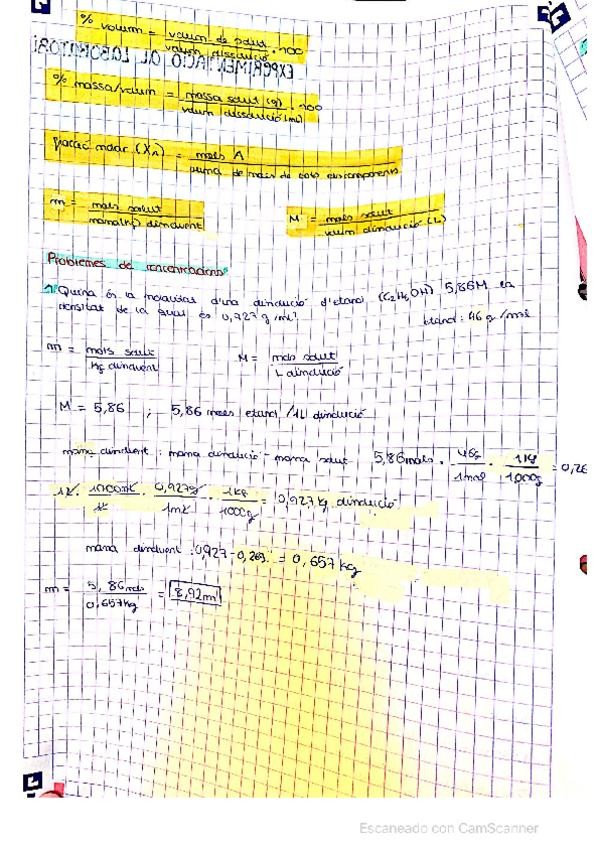 % volum = volum de solut / volum dissolució · 100
EXPERIMENTACIÓ AL LABORATORI
% massa/volum = massa solut (g) / volum dissolució (mL) · 100
Fracció molar (XA) = mols A / suma de mols de tots els components
m = mols solut / massa (kg) dissolvent
M = mols solut / volum dissolució (L)
Problemes de concentracions
1. Quina és la molalitat d'una dissolució d'etanol (C2H5OH) 5,86M la
densitat de la qual és 0,927 g/mL?
etanol: 46 g/mol
m = mols solut / Kg dissolvent
M = mols solut / L dissolució
M = 5,86 ; 5,86 moles etanol / 1L dissolució
massa dissolvent: massa dissolució - massa solut
5,86 mols · 46g / 1mol · 1kg / 1000g = 0,26
1L · 1000mL / 1L · 0,927g / 1mL · 1kg / 1000g = 0,927 kg dissolució
massa dissolvent: 0,927 - 0,269 = 0,657 kg
m = 5,86 mols / 0,657kg = 8,92 m
Escaneado con CamScanner